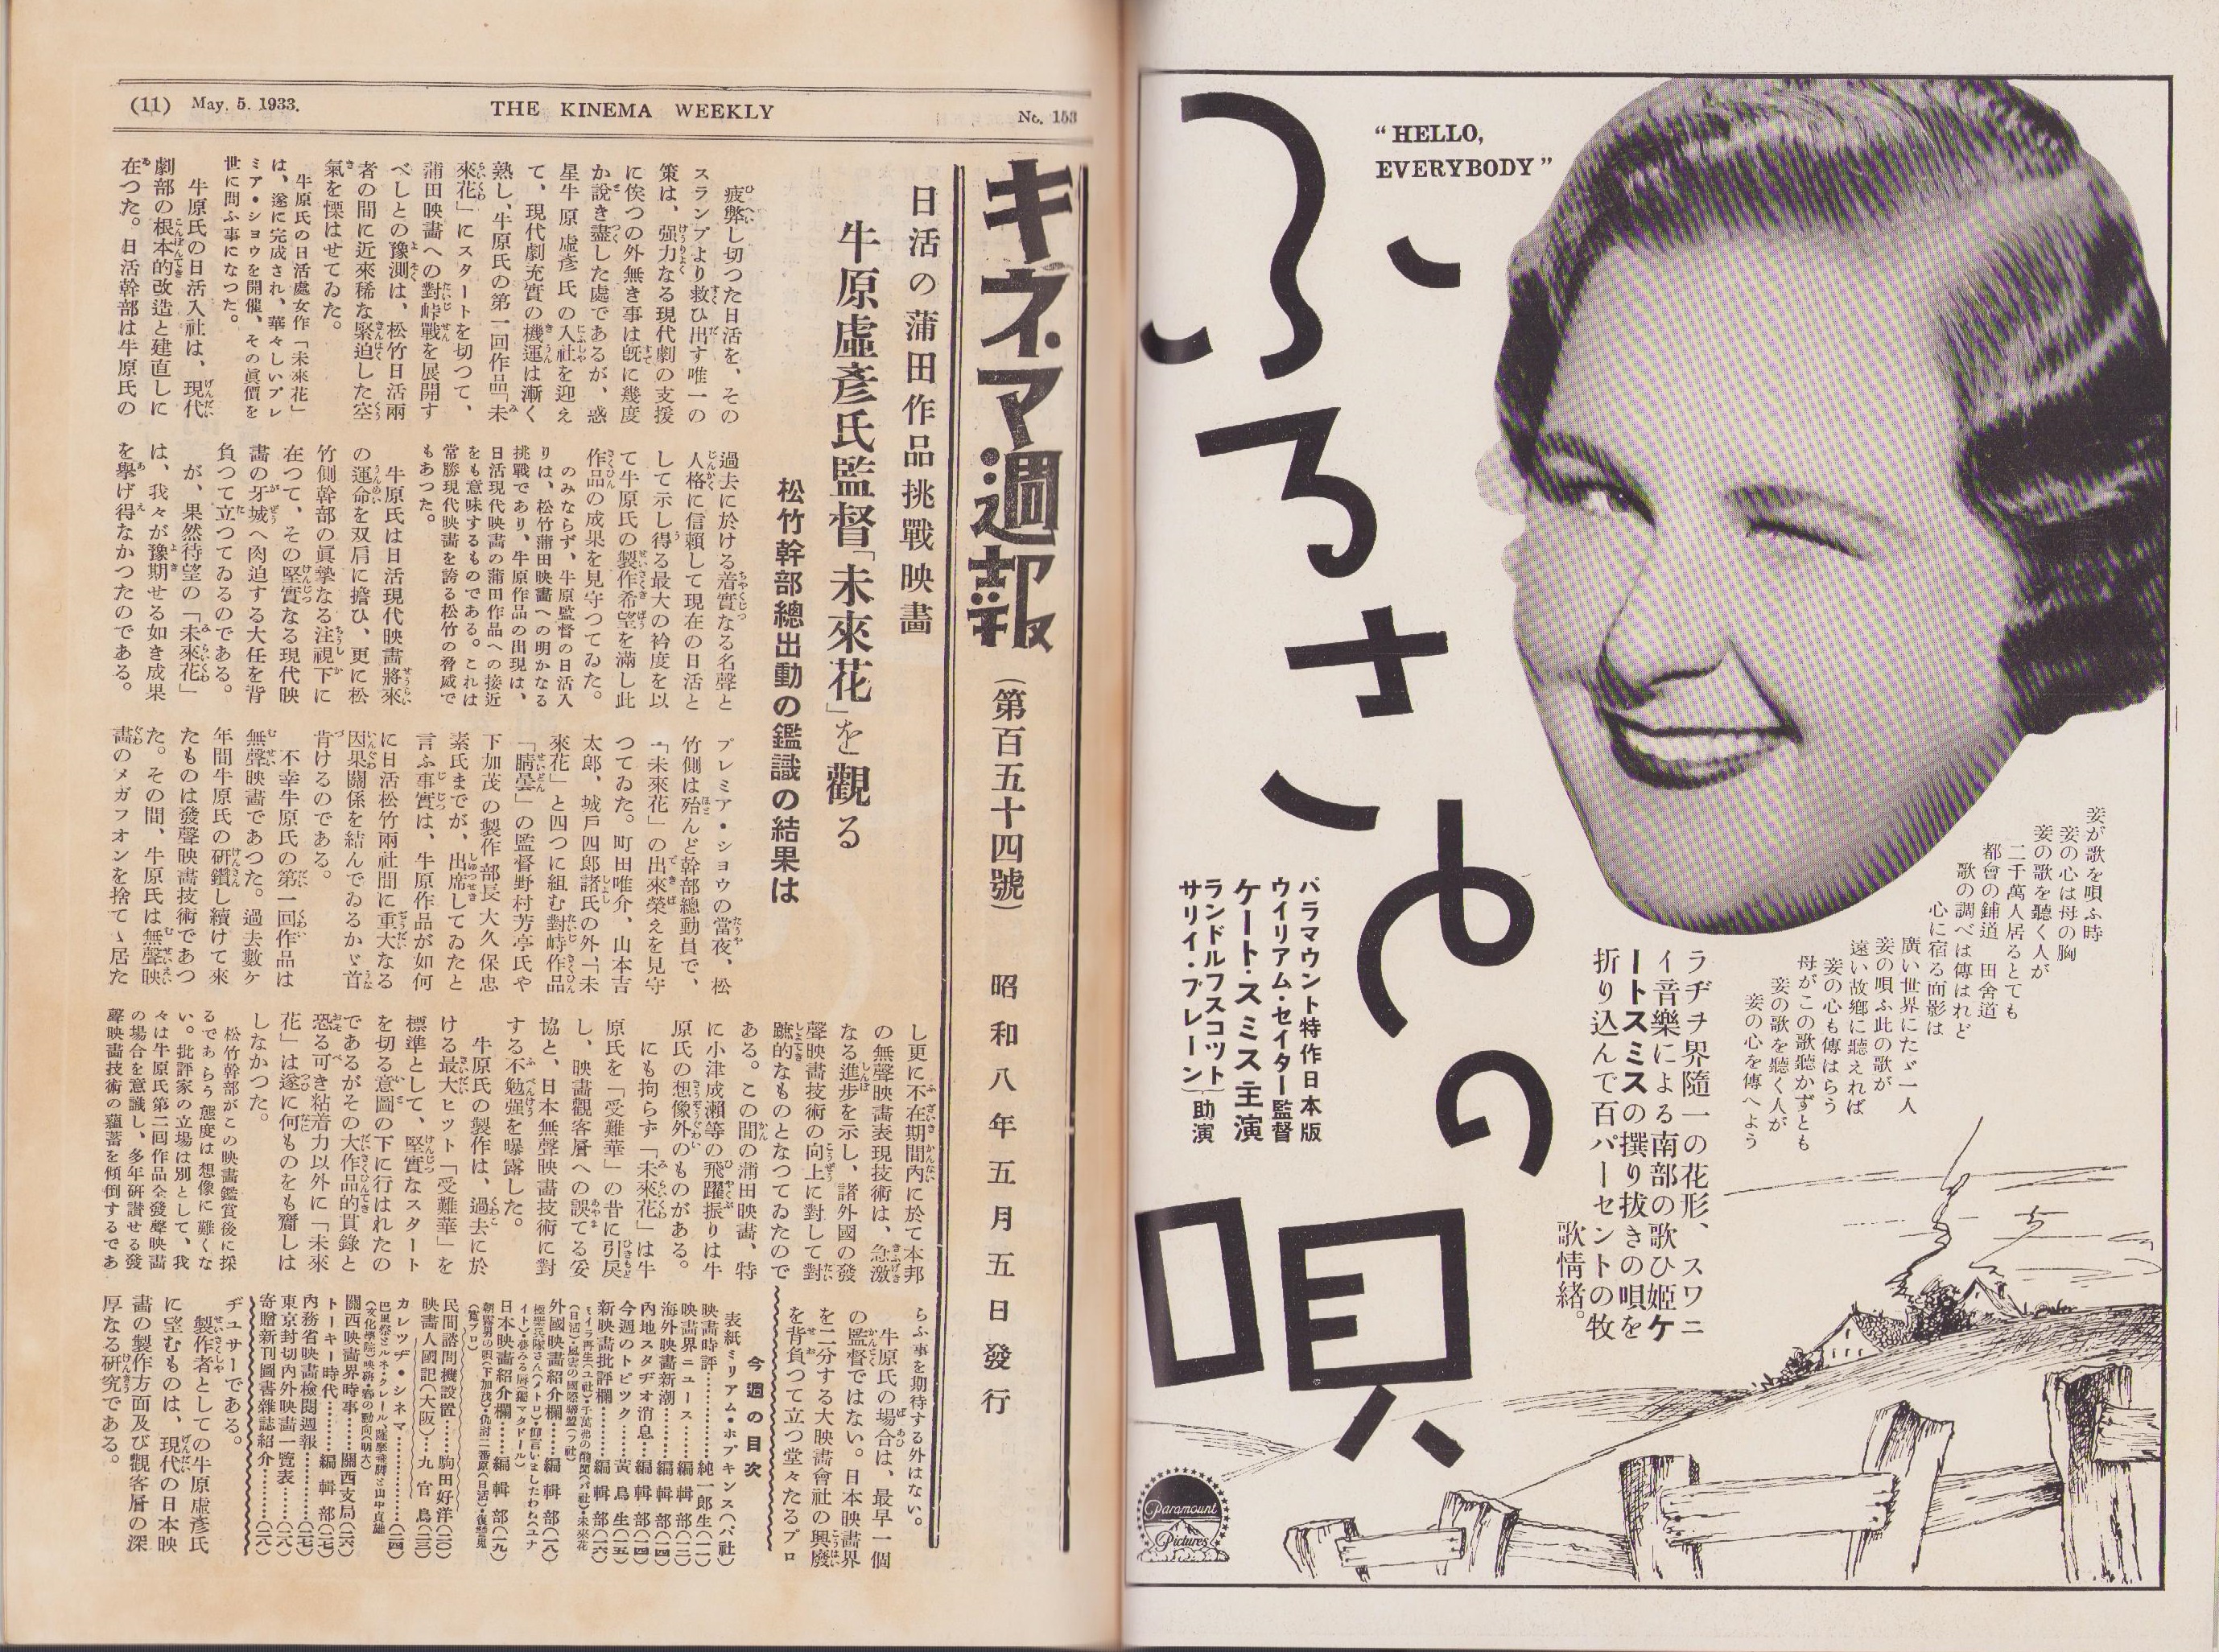 (11) May. 5. 1933. THE KINEMA WEEKLY No. 153
キネマ週報
(第百五十四號) 昭和八年五月五日發行
日活の蒲田作品挑戰映畫
牛原虛彥氏監督「未來花」を觀る
松竹幹部總出動の鑑識の結果は
疲弊し切つた日活を、その
スランプより救ひ出す唯一の
策は、强力なる現代劇の支援
に俟つの外無き事は旣に幾度
か說き盡した處であるが、惑
星牛原虛彥氏の入社を迎え
て、現代劇充實の機運は漸く
熟し、牛原氏の第一回作品「未
來花」にスタートを切つて、
蒲田映畫への對峙戰を展開す
べしとの豫測は、松竹日活兩
者の間に近來稀な緊迫した空
氣を慄はせてゐた。
牛原氏の日活處女作「未來花」
は、遂に完成され、華々しいプレ
ミア・シヨウを開催、その眞價を
世に問ふ事になつた。
牛原氏の日活入社は、現代
劇部の根本的改造と建直しに
在つた。日活幹部は牛原氏の
過去に於ける着實なる名聲と
人格に信賴して現在の日活と
して示し得る最大の衿度を以
て牛原氏の製作希望を滿し此
作品の成果を見守つてゐた。
のみならず、牛原監督の日活入
りは、松竹蒲田映畫への明かなる
挑戰であり、牛原作品の出現は、
日活現代映畫の蒲田作品への接近
をも意味するものである。これは
常勝現代映畫を誇る松竹の脅威で
もあつた。
牛原氏は日活現代映畫將來
の運命を双肩に擔ひ、更に松
竹側幹部の眞摯なる注視下に
在つて、その堅實なる現代映
畫の牙城へ肉迫する大任を背
負つて立つてゐるのである。
が、果然待望の「未來花」
は、我々が豫期せる如き成果
を擧げ得なかつたのである。
プレミア・シヨウの當夜、松
竹側は殆んど幹部總動員で、
「未來花」の出來榮えを見守
つてゐた。町田唯介、山本吉
太郎、城戶四郎諸氏の外、「未
來花」と四つに組む對峙作品
「晴曇」の監督野村芳亭氏や
下加茂の製作部長大久保忠
素氏までが、出席してゐたと
言ふ事實は、牛原作品が如何
に日活松竹兩社間に重大なる
因果關係を結んでゐるかゞ首
肯けるのである。
不幸牛原氏の第一回作品は
無聲映畫であつた。過去數ケ
年間牛原氏の硏鑽し續けて來
たものは發聲映畫技術であつ
た。その間、牛原氏は無聲映
畫のメガフオンを捨てゝ居た
し更に不在期間內に於て本邦
の無聲映畫表現技術は、急激
なる進步を示し、諸外國の發
聲映畫技術の向上に對して對
蹠的なものとなつてゐたので
ある。この間の蒲田映畫、特
に小津成瀨等の飛躍振りは牛
原氏の想像外のものがある。
にも拘らず「未來花」は牛
原氏を「受難華」の昔に引戾
し、映畫觀客層への誤てる妥
協と、日本無聲映畫技術に對
する不勉强を曝露した。
牛原氏の製作は、過去に於
ける最大ヒツト「受難華」を
標準として、堅實なスタート
を切る意圖の下に行はれたの
であるがその大作品的貫錄と
恐る可き粘着力以外に「未來
花」は遂に何ものをも齎しは
しなかつた。
松竹幹部がこの映畫鑑賞後に採
るであらう態度は想像に難くな
い。批評家の立場は別として、我
々は牛原氏第二回作品全發聲映畫
の場合を意識し、多年硏讃せる發
聲映畫技術の蘊蓄を傾倒するであ
らふ事を期待する外はない。
牛原氏の場合は、最早一個
の監督ではない。日本映畫界
を二分する大映畫會社の興廢
を背負つて立つ堂々たるプロ
ヂユサーである。
製作者としての牛原虛彥氏
に望むものは、現代の日本映
畫の製作方面及び觀客層の深
厚なる硏究である。
今週の目次
表紙ミリアム・ホプキンス(パ社)
映畫時評…………純一郎生(一一)
映畫界ニュース……編輯部(一二)
海外映畫新潮………編輯部(一四)
內地スタヂオ消息……編輯部(一四)
今週のトピツク……黃鳥生(一五)
新映畫批評欄………編輯部(一六)
外國映畫紹介欄……編輯部(一八)
日本映畫紹介欄……編輯部(一九)
民間諮問機設置……駒田好洋(二〇)
映畫人國記(大阪)…九官鳥(二三)
カレツヂ・シネマ…………(二四)
關西映畫界時事……關西支局(二六)
トーキー時代………編輯部(二七)
內務省映畫檢閱週報………(二七)
東京封切內外映畫一覽表……(二八)
寄贈新刊圖書雜誌紹介………(二八)
"HELLO,
EVERYBODY"
ふるさとの唄
妾が歌を唄ふ時
妾の心は母の胸
妾の歌を聽く人が
二千萬人居るとても
都會の鋪道 田舍道
歌の調べは傳はれど
心に宿る面影は
廣い世界にたゞ一人
妾の唄ふ此の歌が
遠い故鄕に聽えれば
妾の心も傳はらう
母がこの歌聽かずとも
妾の歌を聽く人が
妾の心を傳へよう
ラヂヲ界隨一の花形、スワニ
イ音樂による南部の歌ひ姬ケ
ートスミスの撰り拔きの唄を
折り込んで百パーセントの牧
歌情緖。
パラマウント特作日本版
ウイリアム・セイター監督
ケート・スミス主演
ランドルフスコツト
サリイ・ブレーン
助演
Paramount
Pictures